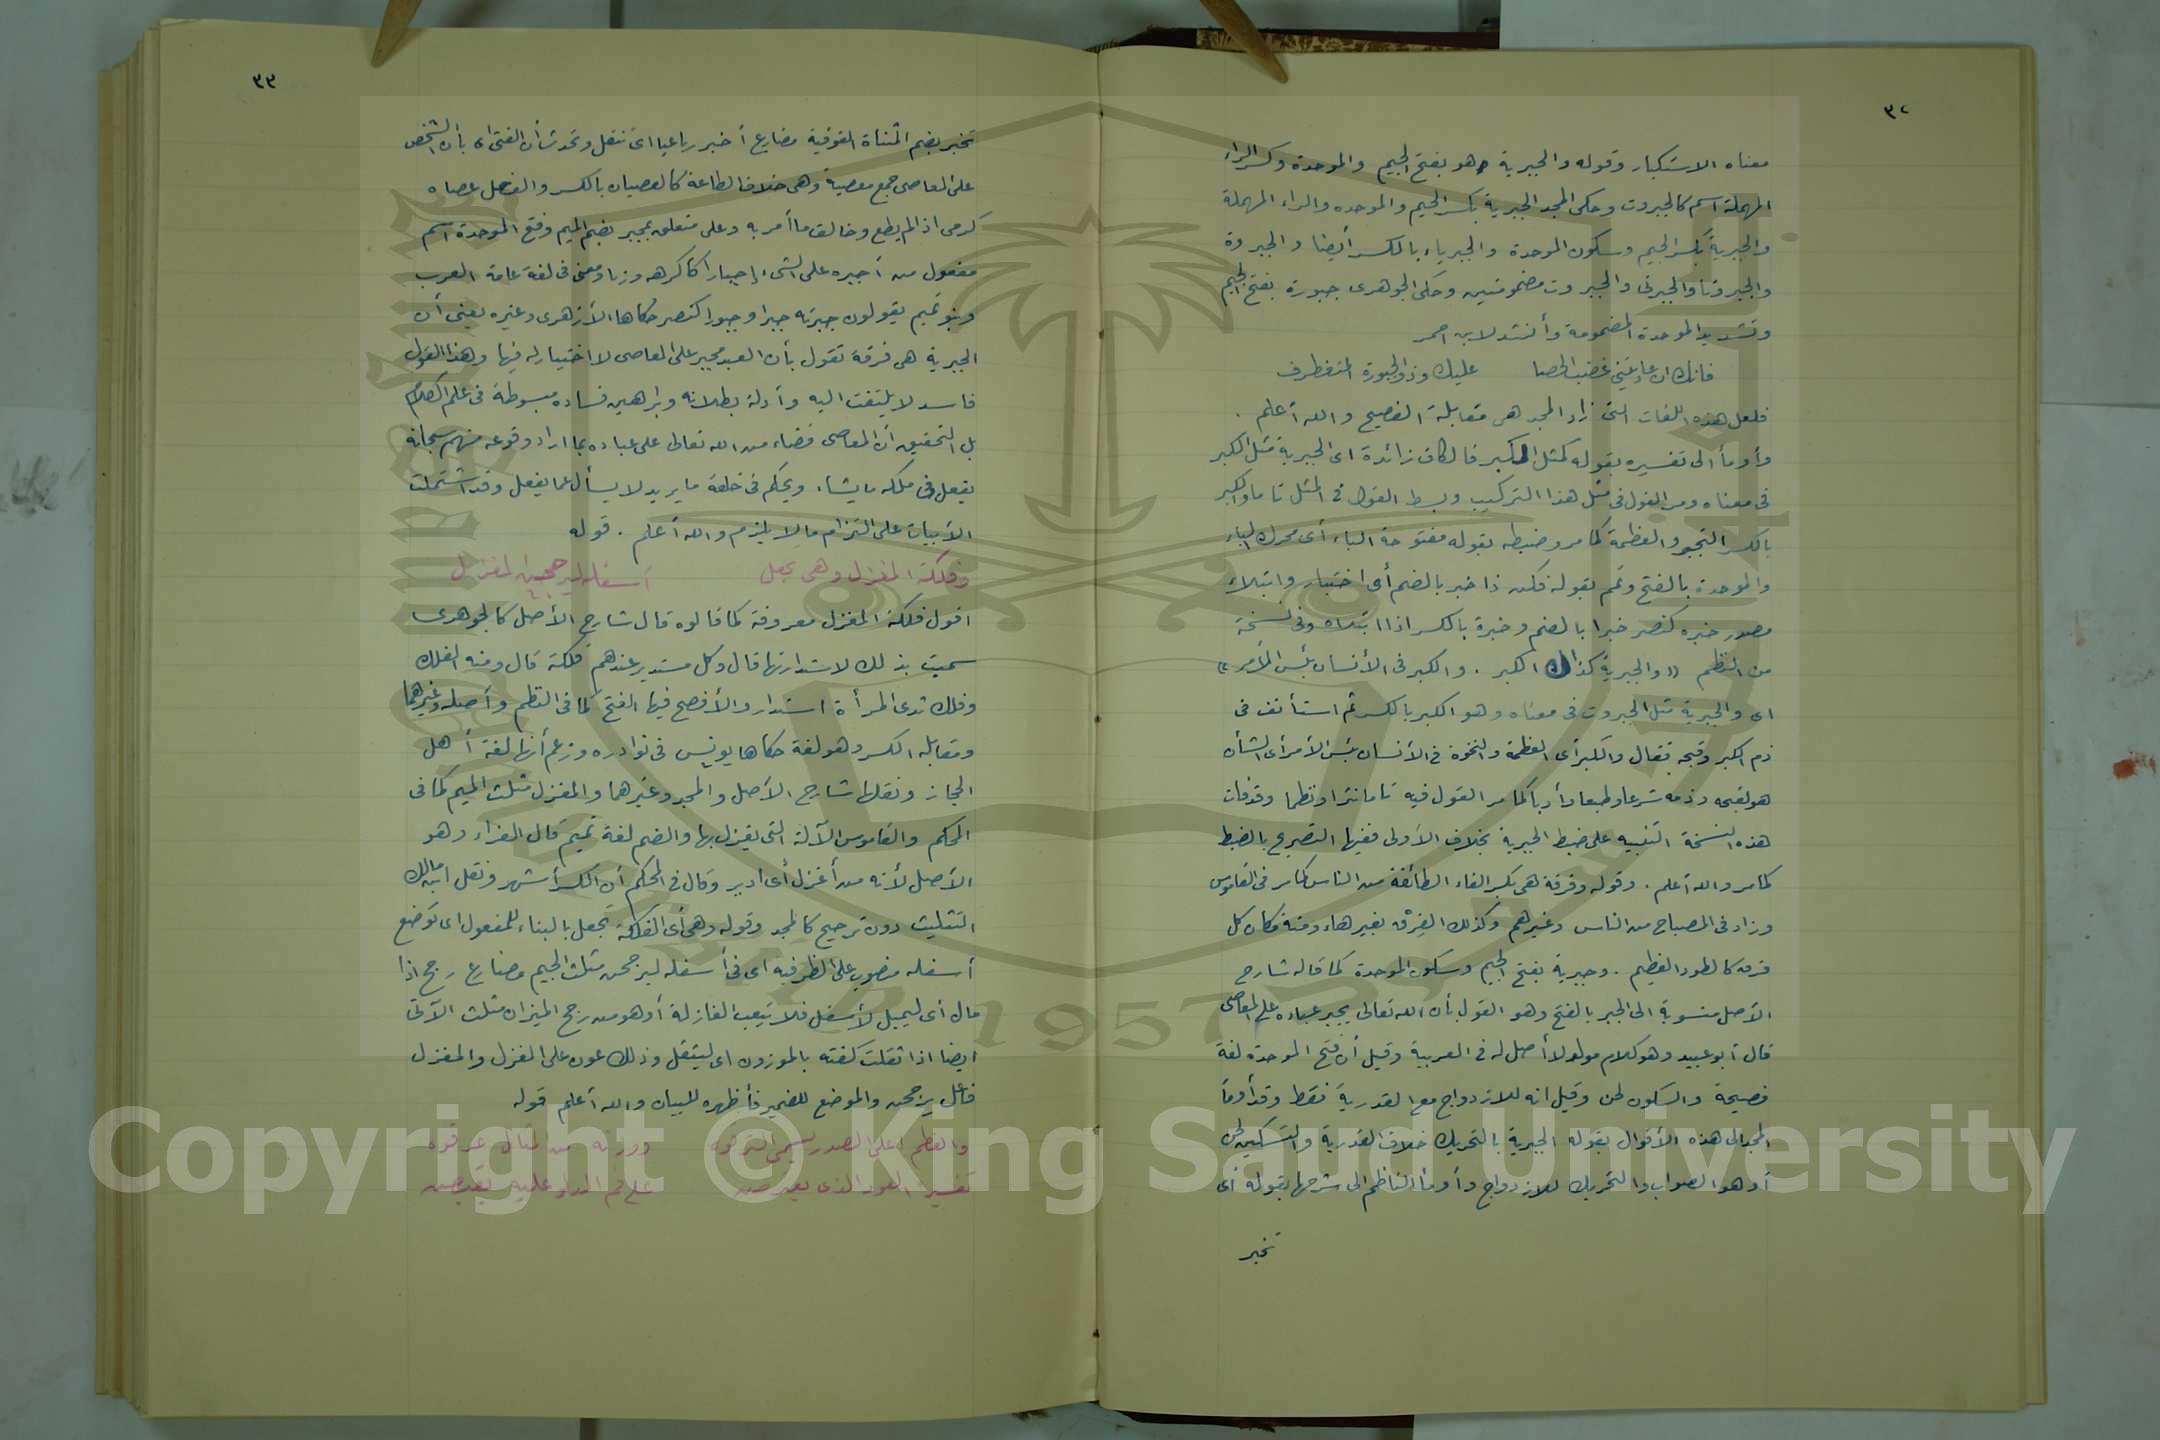 ٣٢
معناه الاستكبار وقوله والجبرية هو بفتح الجيم والموحدة وكسر الراء
المهملة اسم كالجبروت وحكى المجد الجبرية بكسر الجيم والموحده والراء المهملة
والجبرية بكسر الجيم وسكون الموحدة والجبرياء بالكسر أيضا والجبروة
والجبروتا والجبرتى والجبروت مضمومتين وحكى الجوهرى جبورة بفتح الجيم
وتشديد الموحدة المضمومة وأنشد لابن احمر
فانك ان عاديتنى غضب الحصا عليك وذو الجبورة المتغطرف
فلعل هذه اللغات التى زاد المجد هى مقابلة الفصيح والله أعلم .
وأومأ الى تفسيره بقوله كمثل الكبر فالكاف زائدة اى الجبرية مثل الكبر
فى معناه ومر القول فى مثل هذا التركيب وبسط القول فى المثل تاما والكبر
بالكسر التجبر والعظمة كما مر وضبطه بقوله مفتوحة الباء أى محرك الباء
والموحدة بالفتح وتمم بقوله فكن ذا خبر بالضم أى اختبار وابتلاء
مصدر خبره كنصر خبرا بالضم وخبرة بالكسر اذا ابتلاه وفى نسخة
من النظم «والجبرية كذاك الكبر . والكبر فى الأنسان بئس الأمر»
اى والجبرية مثل الجبروت فى معناه وهو الكبر بالكسر ثم استأنف فى
ذم الكبر وقبحه فقال والكبر أى العظمة والنخوة فى الأنسان بئس الأمر أى الشأن
هو لقبحه وذمه شرعا وطبعا وأدبا كما مر القول فيه تاما نثرا ونظما وقد فات
هذه النسخة التنبيه على ضبط الجبرية بخلاف الأولى ففيها التصريح بالضبط
كما مر والله أعلم . وقوله وفرقة هى بكسر الفاء الطائفة من الناس كما مر فى القاموس
وزاد فى المصباح من الناس وغيرهم وكذلك الفِرْق بغير هاء ومنه فكان كل
فرق كالطود العظيم . وجبرية بفتح الجيم وسكون الموحدة كما قاله شارح
الأصل منسوبة الى الجبر بالفتح وهو القول بأن الله تعالى يجبر عباده على المعاصى
قال أبو عبيد وهو كلام مولد لا أصل له فى العربية وقيل أن فتح الموحدة لغة
فصيحة والسكون لحن وقيل انه للازدواج مع القدرية فقط وقد أومأ
المجد الى هذه الأقوال بقوله الجبرية بالتحريك خلاف القدرية والتسكين لحن
أو هو الصواب والتحريك للازدواج وأومأ الناظم الى شرحها بقوله أى
تخبر
٣٣
تخبر بضم المثناة الفوقية مضارع أخبر رباعيا اى تنقل وتحدث أن الفتى اى بأن الشخص
على المعاصى جمع معصية وهى خلاف الطاعة كالعصيان بالكسر والفعل عصاه
كرمى اذا لم يطع وخالف ما أمر به وعلى متعلق بمجبر بضم الميم وفتح الموحدة اسم
مفعول من أجبره على الشىء إجبارا كأكرهه وزنا ومعنى فى لغة عامة العرب
وبنو تميم يقولون جبرته جبرا وجبورا كنصر حكاها الأزهرى وغيره يعنى أن
الجبرية هى فرقة تقول بأن العبد مجبر على المعاصى لا اختيار له فيها وهذا القول
فاسد لا يلتفت اليه وأدلة بطلانه وبراهين فساده مبسوطة فى علم الكلام
بل التحقيق أن المعاصى قضاء من الله تعالى على عباده بما اراد وقوعه منهم سبحانه
يفعل فى ملكه ما يشاء . ويحكم فى خلقه ما يريد لا يسأل عما يفعل وقد اشتملت
الأبيات على التزام ما لا يلزم والله أعلم . قوله
وفلكة المغزل وهى تجعل أسفله ليرجحن المغزل
اقول فلكة المغزل معروفة كما قالوه قال شارح الأصل كالجوهرى
سميت بذلك لاستدارتها قال وكل مستدير عندهم فلكة قال ومنه الفلك
وفلك ثدى المرأة استدار والأفصح فيها الفتح كما فى النظم وأصله وغيرهما
ومقابله الكسر وهو لغة حكاها يونس فى نوادره وزعم أنها لغة أهل
الحجاز ونقلها شارح الأصل والمجد وغيرهما والمغزل مثلث الميم كما فى
المحكم والقاموس الآلة التى يغزل بها والضم لغة تميم قال الفراء وهو
الأصل لأنه من أغزل أى ادير وقال فى المحكم أن الكسر أشهر ونقل ابن مالك
التثليث دون ترجيح كالمجد وقوله وهى أى الفلكة تجعل بالبناء للمفعول اى توضع
أسفله منصوب على الظرفيه اى فى أسفله ليرجحن مثلث الجيم مضارع رجح اذا
مال اى ليميل لأسفل فلا يتعب الغازلة أو هو من رجح الميزان مثلث الآتى
ايضا اذا ثقلت كفته بالموزون اى ليثقل وذلك عون على الغزل والمغزل
فاعل يرجحن والموضع للضمير فأظهره للبيان والله أعلم قوله
والعظم اعلى الصدر يسمى الترقوه ووزنه من المثال عرقوه
تفسيرة العود الذى يعترض على فم الدلو عليه يقبض
Copyright © King Saud University
1957